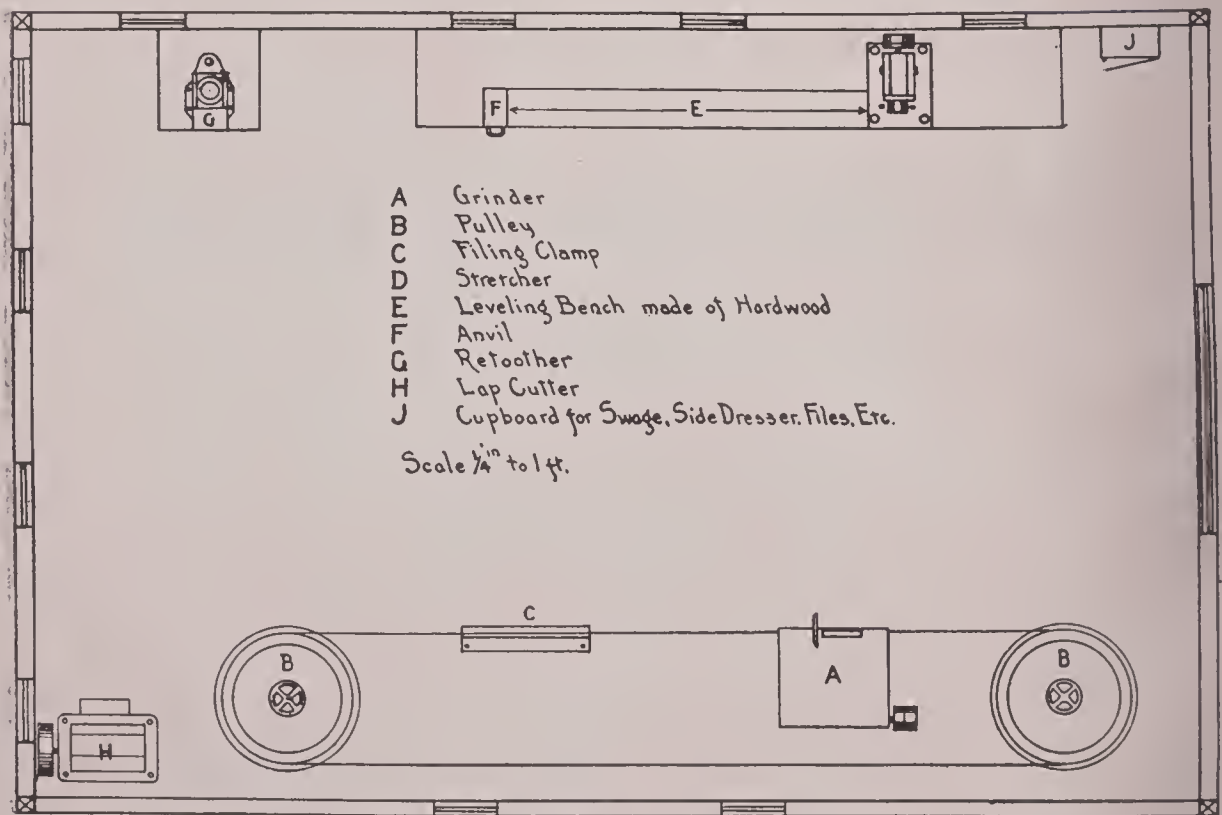 J
G
F
E
A Grinder
B Pulley
C Filing Clamp
D Stretcher
E Leveling Bench made of Hardwood
F Anvil
G Retoother
H Lap Cutter
J Cupboard for Swage, Side Dresser. Files, Etc.
Scale 1/4 in to 1 ft.
C
B
A
B
H